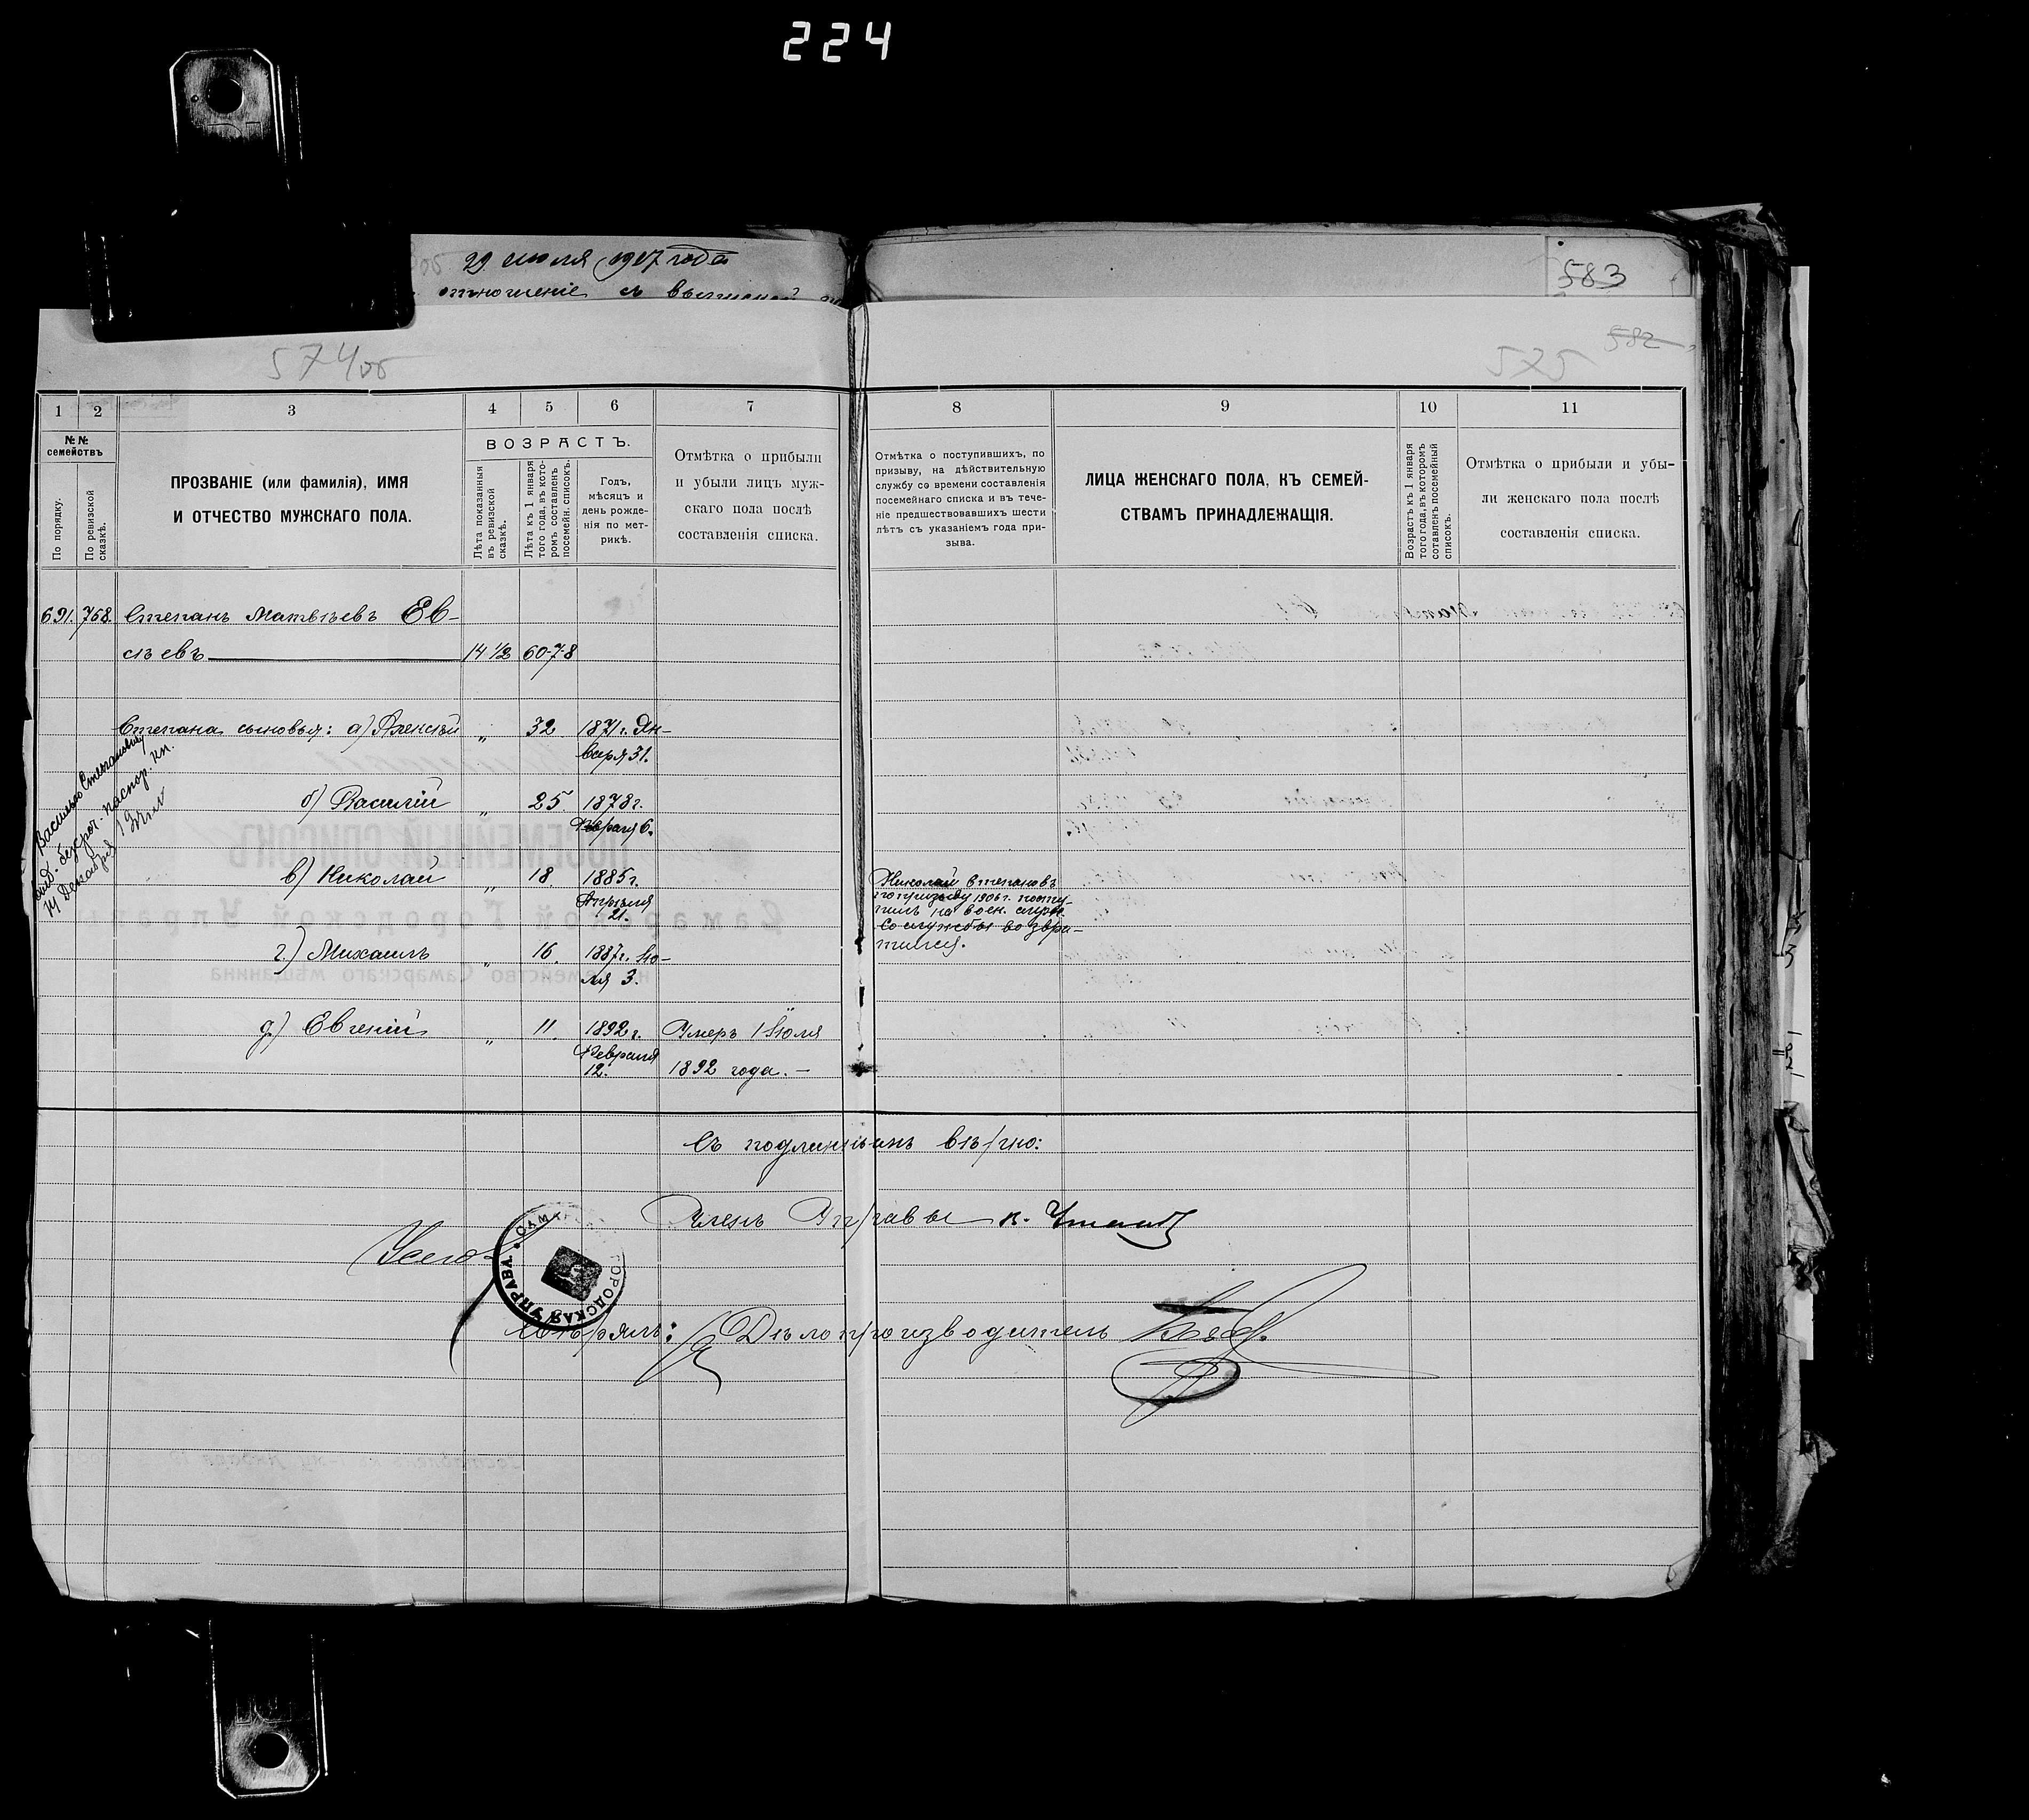 224
29 июля 1917 года
отношеніе съ
583
574об
582
575
1
2
3
4
5
6
7
8
9
10
11
№№
семействъ
По порядку.
По ревизской
сказкѣ.
ПРОЗВАНІЕ (или фамилія), ИМЯ
И ОТЧЕСТВО МУЖСКАГО ПОЛА.
ВОЗРАСТЪ.
Лѣта показанныя
въ ревизской
сказкѣ.
Лѣта къ 1 января
того года, въ кото-
ромъ составленъ
посемейн. списокъ.
Годъ,
мѣсяцъ и
день рожде-
нія по мет-
рикѣ.
Отмѣтка о прибыли
и убыли лицъ муж-
скаго пола послѣ
составленія списка.
Отмѣтка о поступившихъ, по
призыву, на дѣйствительную
службу со времени составленія
посемейнаго списка и въ тече-
ніе предшествовавшихъ шести
лѣтъ съ указаніемъ года при-
зыва.
ЛИЦА ЖЕНСКАГО ПОЛА, КЪ СЕМЕЙ-
СТВАМЪ ПРИНАДЛЕЖАЩІЯ.
Возрастъ къ 1 января
того года, въ которомъ
сотавленъ посемейный
списокъ.
Отмѣтка о прибыли и убы-
ли женскаго пола послѣ
составленія списка.
691. 768. Степанъ Матвѣевъ Ев-
сѣевъ 14 1/2 60-7-8
Степана сыновья: а) Алексѣй „ 32 1871 г. Ян-
варя 31.
б) Василій „ 25 1878 г.
Февраля 6.
в) Николай „ 18. 1885 г.
Апрѣля
21.
Николай Степановъ
по призыву 1906 г. посту-
пилъ на воен. службу.
Со службы возвра-
тился.
г.) Михаилъ „ 16. 1887 г. Ію-
ля 3.
д.) Евгеній „ 11. 1892 г. Умеръ 1 Іюля
Февраля
12. 1892 года. —
Василію Степановичу
выд. безсроч. паспор. кн.
14 Декабря
Съ подлиннымъ вѣрно:
Членъ Управы
САМАРСКАЯ ГОРОДСКАЯ УПРАВА
Свѣрялъ: Дѣлопроизводитель